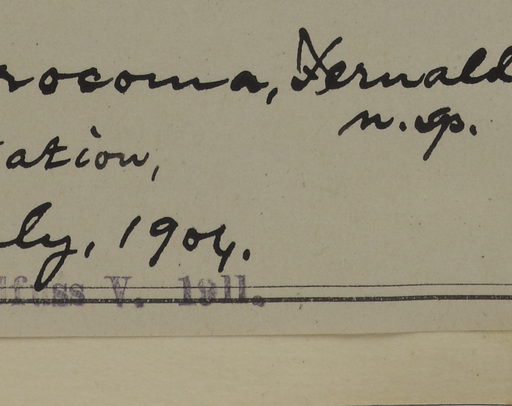 rocoma, Fernald
n. sp.
ation,
ly, 1904.
fuss V. 1911.